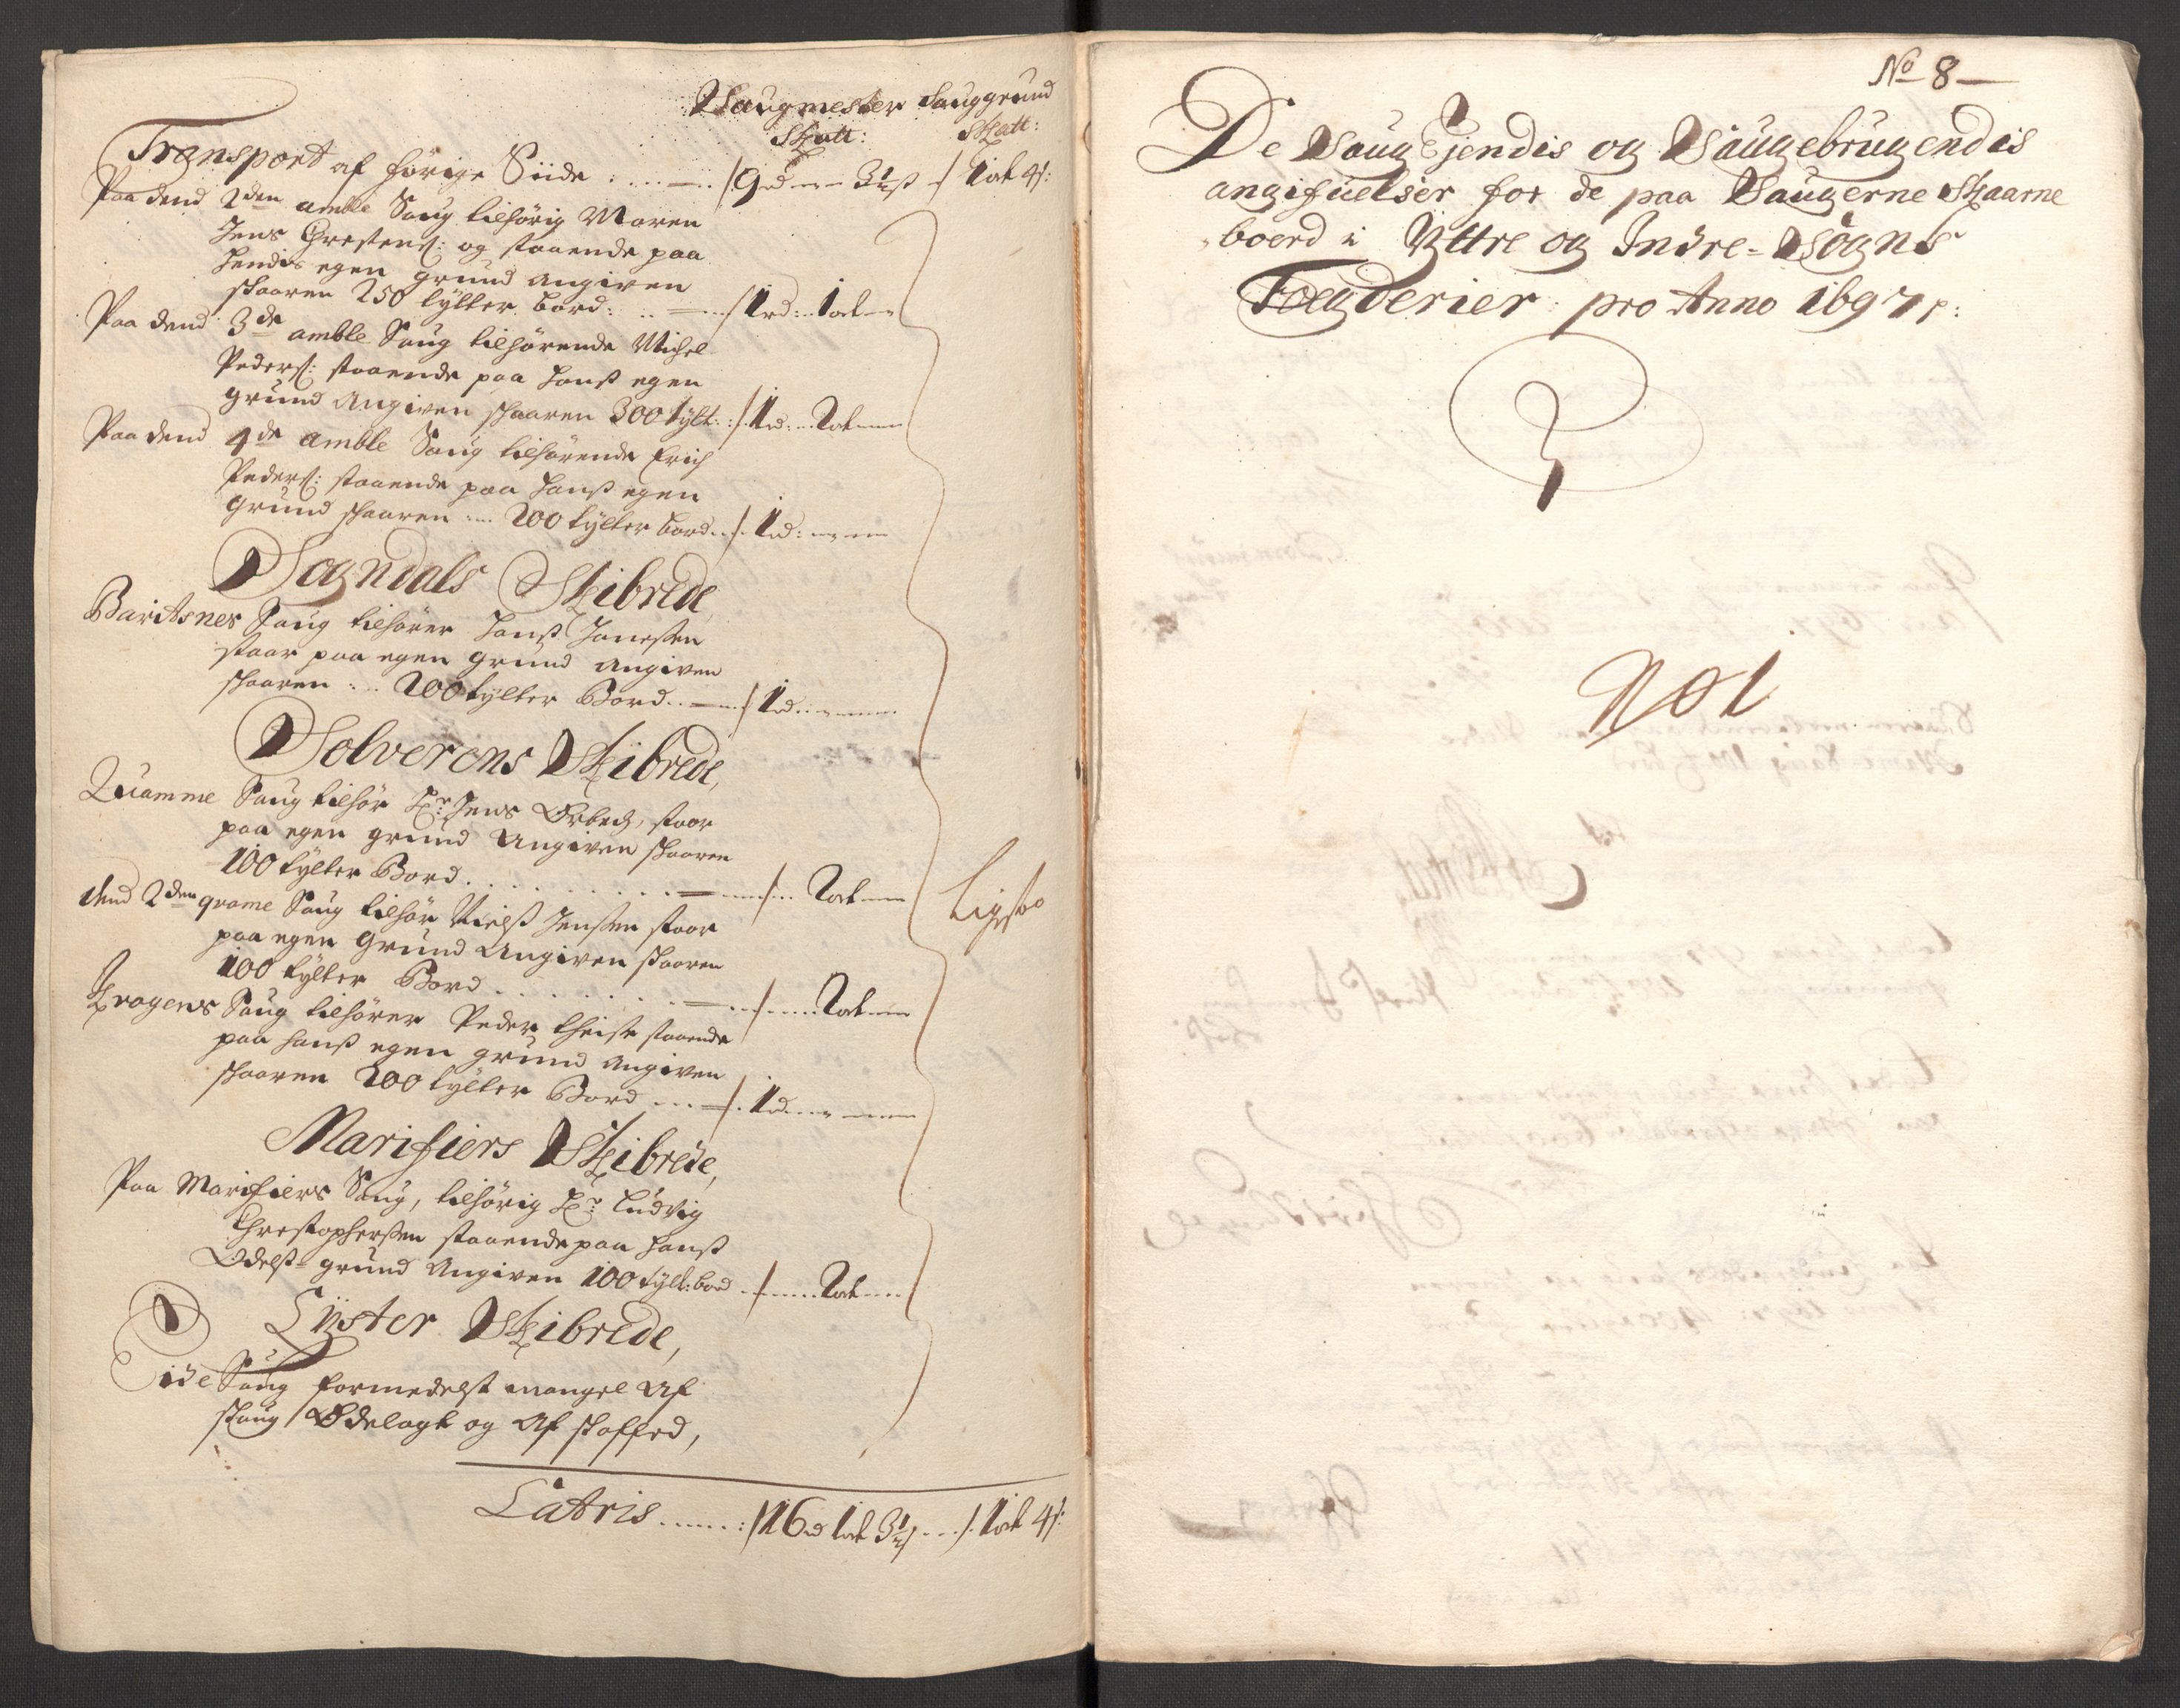 Saugmester Sauggrund
Skatt: Skatt:
Transport af forige Siide : ... /9 rd – – 3½ ß / 1 ort 4 s:
Paa dend 2den amble Saug tilhörig Maren
Jens Chrestens: og staaende paa
hendis egen grund angiven
skaaren 250 tylter bord: .. /1 rd: 1 ort –
Paa dend 3de amble Saug tilhörende Michel
Peders: staaende paa hanß egen
grund angiven skaaren 300 tylt: /1 rd: 2 ort –
Paa dend 4de amble Saug tilhörende Erich
Peders: staaende paa hanß egen
grund skaaren ... 200 tylter bord .. / 1 rd: – –
Sogndals Skibrede
Baritsnes Saug tilhörer Hanß Joneßen
staar paa egen grund angiven
skaaren ... 200 tylter Bord .. / 1 rd – –
Solverens Skibrede,
Quamme Saug tilhör Hr: Jens Ørbech, staar
paa egen grund Angiven skaaren
100 tylter Bord . . . . . / .. 2 ort –
dend 2den qvame Saug tilhör Nielß Jenßen staar
paa egen Grund Angiven skaaren
100 tylter Bord . . . . . / .. 2 ort –
Kragens Saug tilhörer Peder theiste staaende
paa hanß egen grund angiven
skaaren 200 tylter Bord ... /. 1 rd – –
Marifiers Skibrede,
Paa Marifiers Saug, tilhörig Hr: Ludvig
Chrestopherßen staaende paa hanß
Odelß-grund Angiven 100 tylt: bord / .. 2 ort –
Ligesaa
Lyster Skibrede,
Eide Saug formedelst mangel Af
skaug Ødelagt og Af skaffed,
Latris ....... : /16 rd 1 ort 3½ s ... /. 1 ort 4 s:
No 8 –
De Saug Ejendis og Saugebrugendis
angifuelser for de paa Saugerne Skaarne
boerd i Yttre og Indre-Sogns
Fogderier pro Anno 1697: